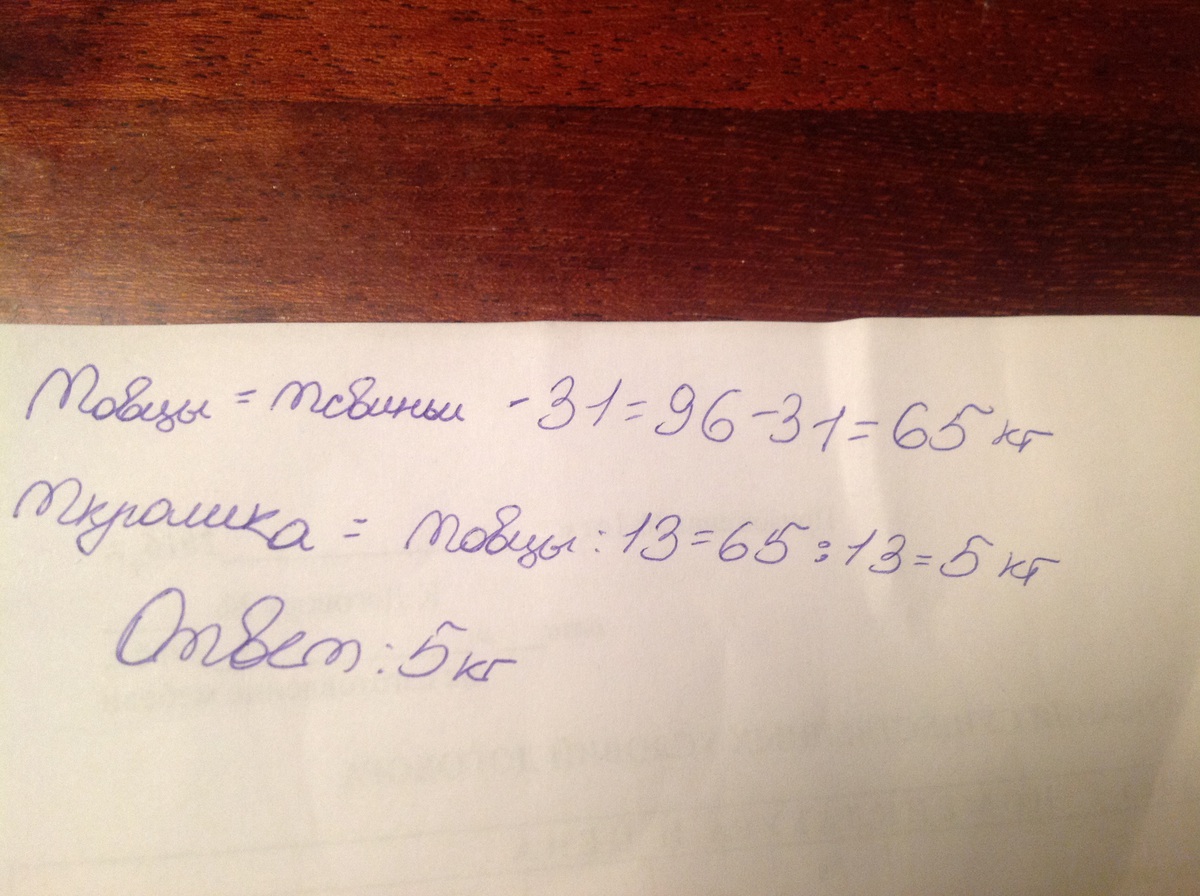 mовцы = mсвиньи - 31 = 96 - 31 = 65 кг
mкролика = mовцы : 13 = 65 : 13 = 5 кг
Ответ : 5 кг